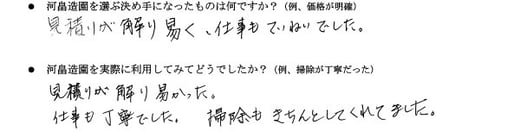 ● 河畠造園を選ぶ決め手になったものは何ですか?(例、価格が明確)
見積りが解り易く、仕事もていねいでした。
● 河畠造園を実際に利用してみてどうでしたか?(例、掃除が丁寧だった)
見積りが解り易かった。
仕事も丁寧でした。 掃除もきちんとしてくれてました。